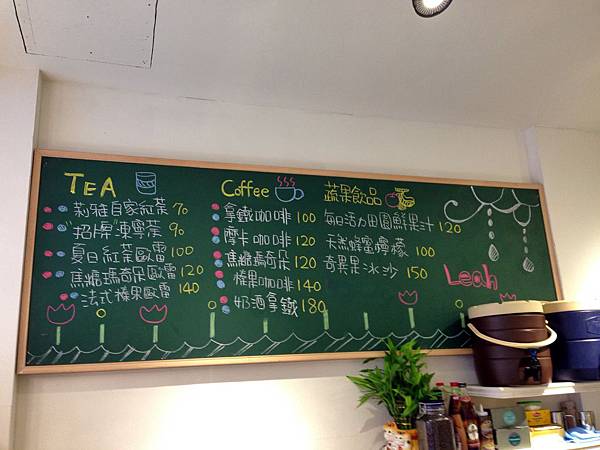 TEA
莉雅自家紅茶 70
招牌凍蜜茶 90
夏日紅茶歐雷 100
焦糖瑪奇朵歐雷 120
法式榛果歐雷 140
Coffee
拿鐵咖啡 100
摩卡咖啡 120
焦糖瑪奇朵 120
榛果咖啡 140
奶酒拿鐵 180
蔬果飲品
每日活力田園鮮果汁 120
天然蜂蜜檸檬 100
奇異果冰沙 150
Leah